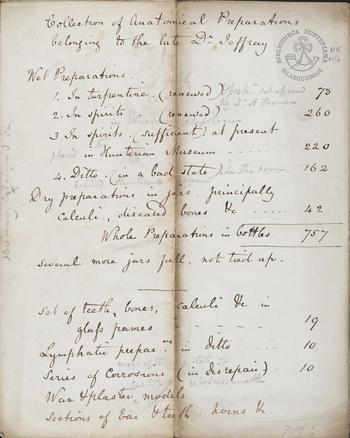 Collection of Anatomical Preparations
belonging to the late Dr. Jeffray
BIBLIOTHECA HUNTERIANA
GLASGUENSIS
Wet Preparations.
1. In turpentine. (renewed) 73
2. In spirits (renewed) 260
3 In spirits. (sufficient) at present
placed in Hunterian Museum 220
4. Ditto. (in a bad state). in the room 162
Dry preparations in jars. principally
Calculi, diseased bones &c 42
Whole Preparations in bottles. 757
Several more jars full. not tied up.
Set of teeth, bones, calculi &c in
glass frames 19
Lymphatic prepar.ns in ditto 10
Series of Corrosions (in disrepair) 10
Wax & plaster models
Sections of Ear & teeth. horns &c.
796